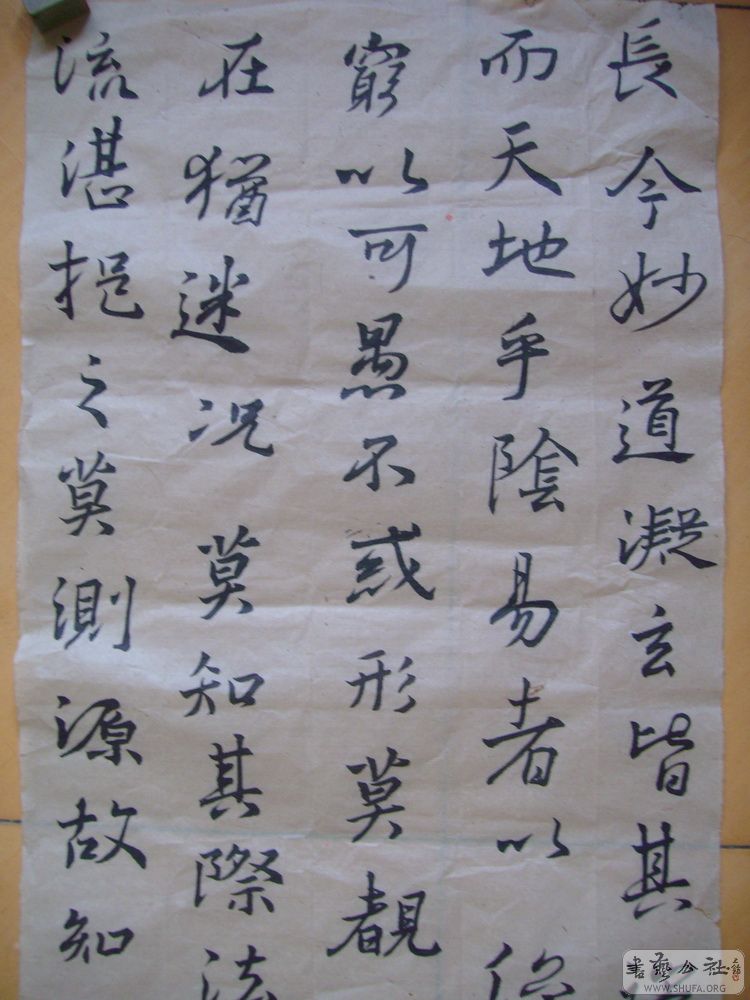 長今妙道凝玄皆其
而天地乎陰易者以
窮以可愚不惑形莫覩
在猶迷况莫知其際法
流湛挹之莫測源故知
書藝公社
WWW.SHUFA.ORG